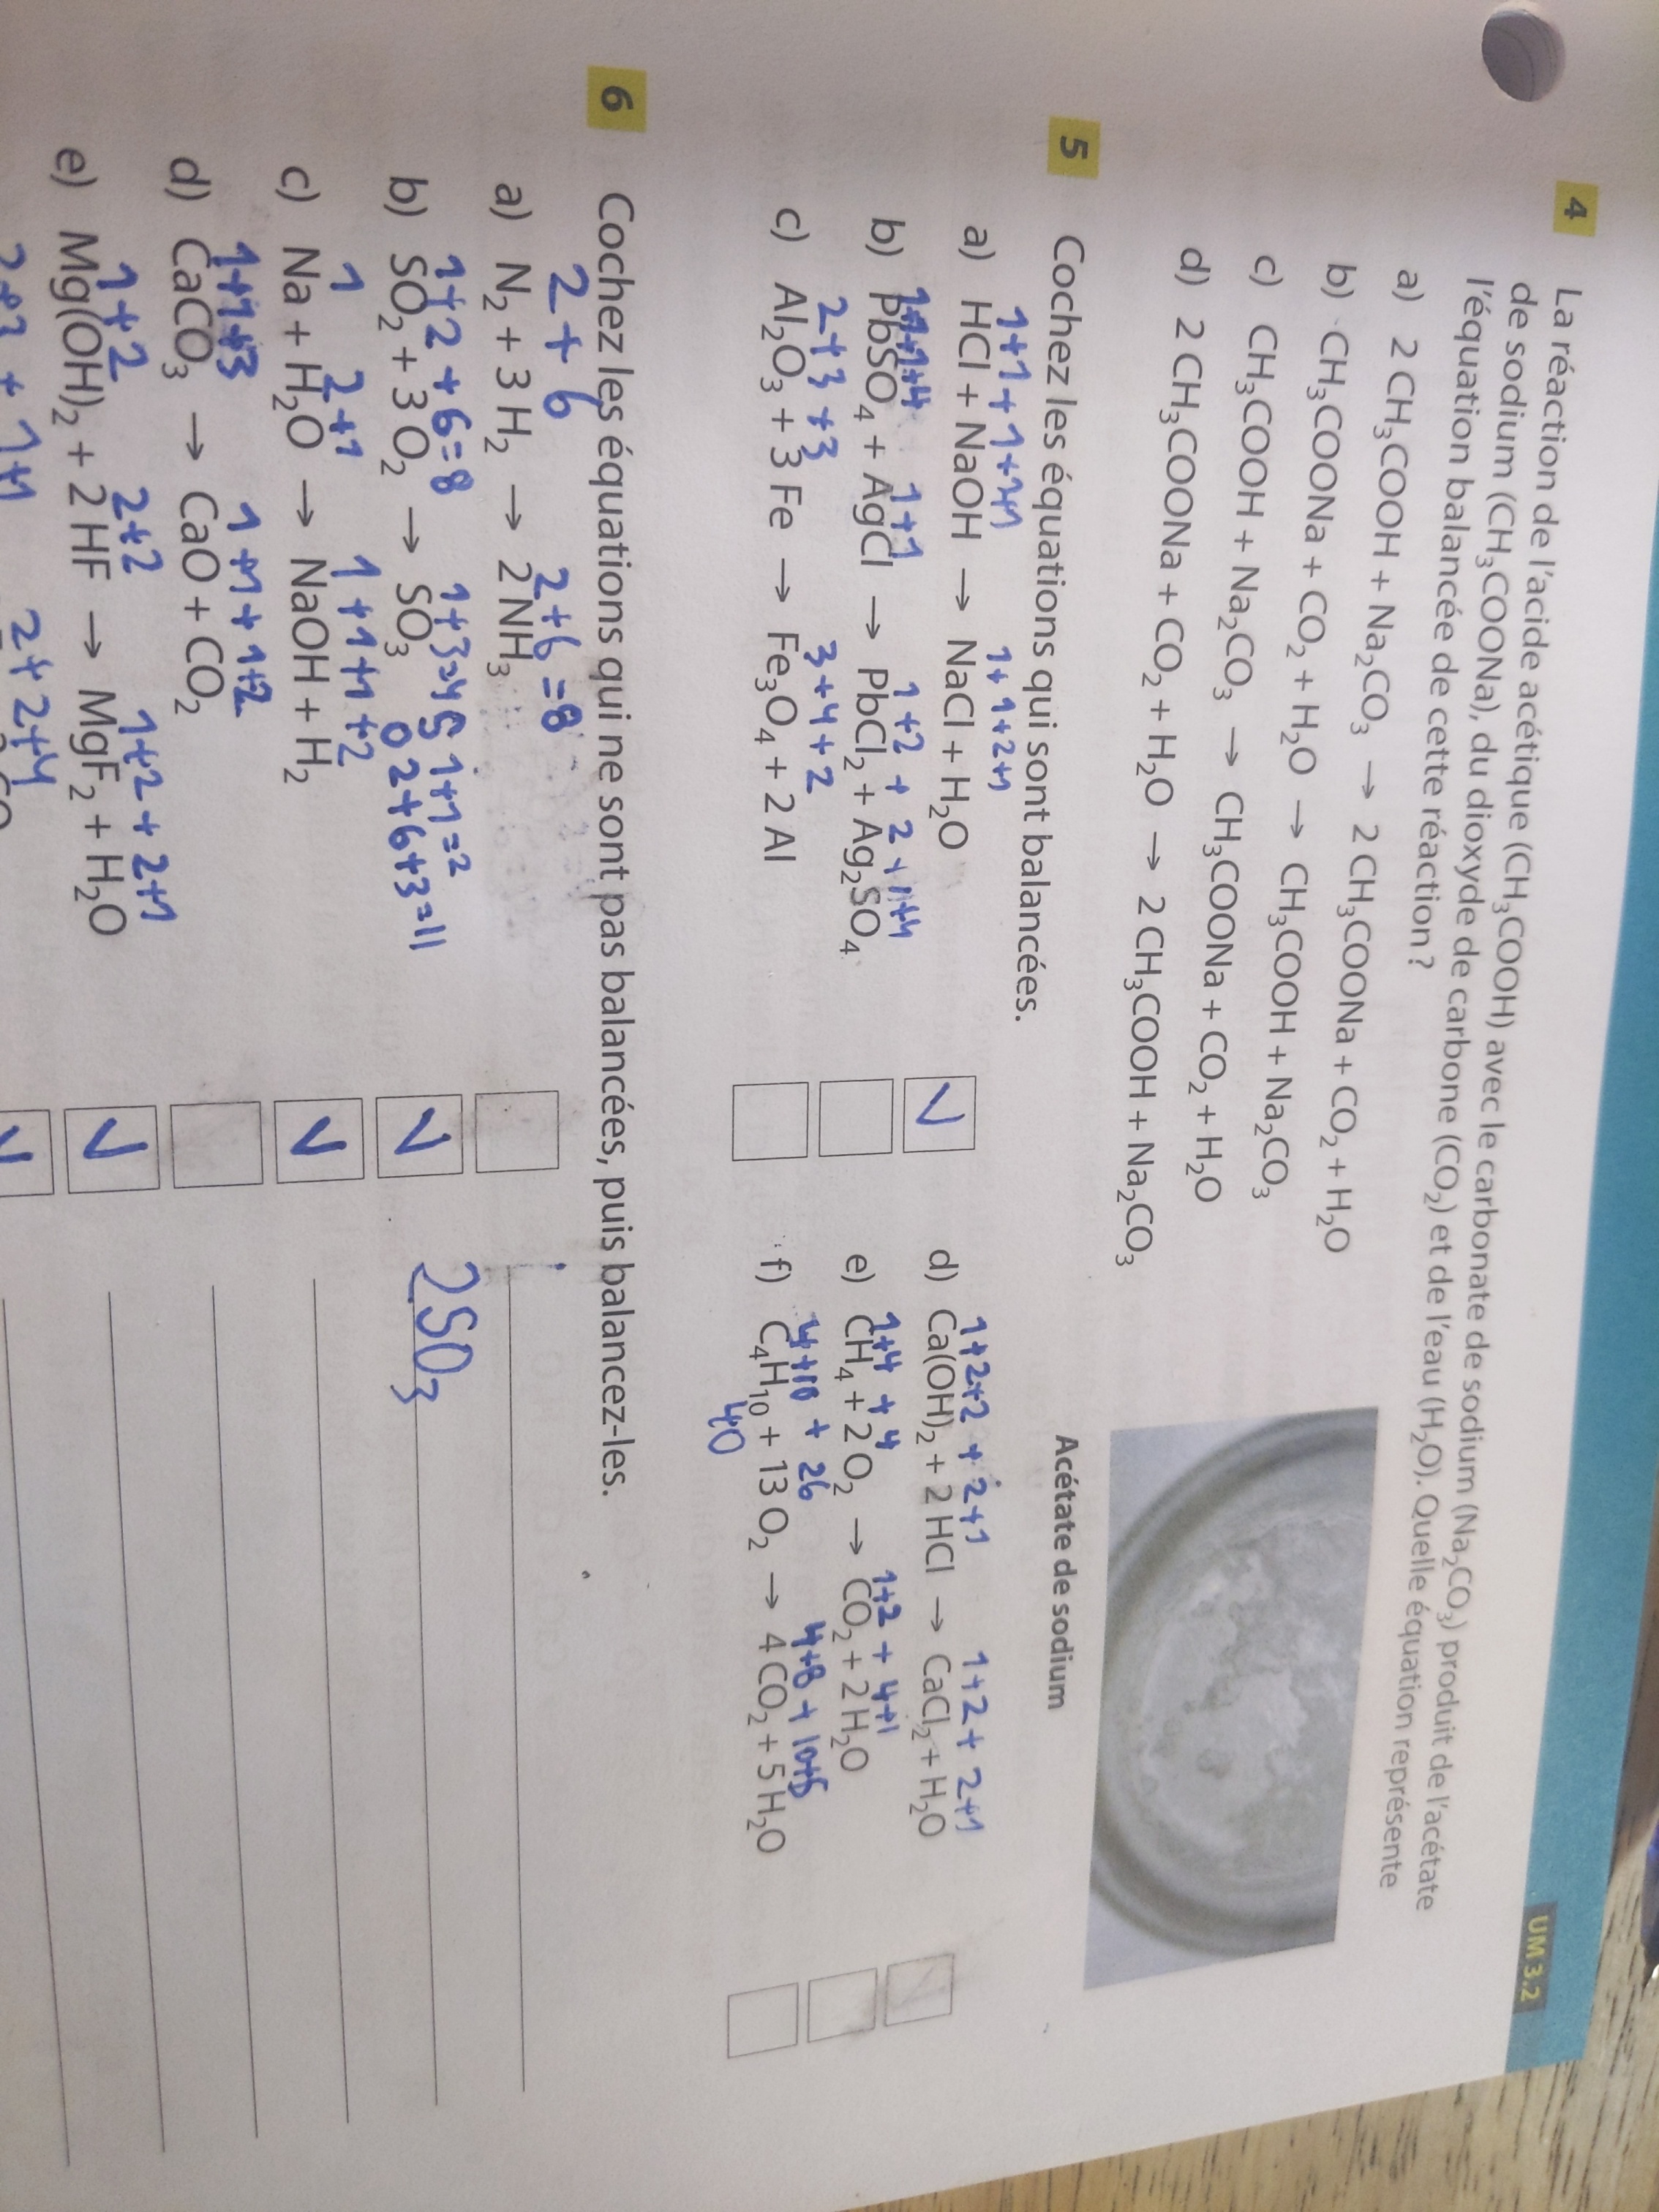 UM 3.2
4 La réaction de l'acide acétique (CH₃COOH) avec le carbonate de sodium (Na₂CO₃) produit de l'acétate
de sodium (CH₃COONa), du dioxyde de carbone (CO₂) et de l'eau (H₂O). Quelle équation représente
l'équation balancée de cette réaction ?
a) 2 CH₃COOH + Na₂CO₃ → 2 CH₃COONa + CO₂ + H₂O
b) CH₃COONa + CO₂ + H₂O → CH₃COOH + Na₂CO₃
c) CH₃COOH + Na₂CO₃ → CH₃COONa + CO₂ + H₂O
d) 2 CH₃COONa + CO₂ + H₂O → 2 CH₃COOH + Na₂CO₃
Acétate de sodium
5 Cochez les équations qui sont balancées.
1+1+1+1+1 1+1+2+1
a) HCl + NaOH → NaCl + H₂O ✓
1+1+4 1+1 1+2 + 2+1+4
b) PbSO₄ + AgCl → PbCl₂ + Ag₂SO₄
2+3+3 3+4+2
c) Al₂O₃ + 3 Fe → Fe₃O₄ + 2 Al
1+2+2 + 2+1 1+2+2+1
d) Ca(OH)₂ + 2 HCl → CaCl₂ + H₂O
1+4 + 4 1+2 + 4+1
e) CH₄ + 2 O₂ → CO₂ + 2 H₂O
4+10 + 26 4+8 + 10+5
f) C₄H₁₀ + 13 O₂ → 4 CO₂ + 5 H₂O
40
6 Cochez les équations qui ne sont pas balancées, puis balancez-les.
2+6 2+6=8
a) N₂ + 3 H₂ → 2 NH₃
1+2+6=8 1+3=4 S 1+1=2
b) SO₂ + 3 O₂ → SO₃ O 2+6+3=11 ✓ 2SO₃
1 2+1 1+1+1+2
c) Na + H₂O → NaOH + H₂ ✓
1+1+3 1+1+1+2
d) CaCO₃ → CaO + CO₂
1+2 2+2 1+2+2+1
e) Mg(OH)₂ + 2 HF → MgF₂ + H₂O ✓
2+2+4